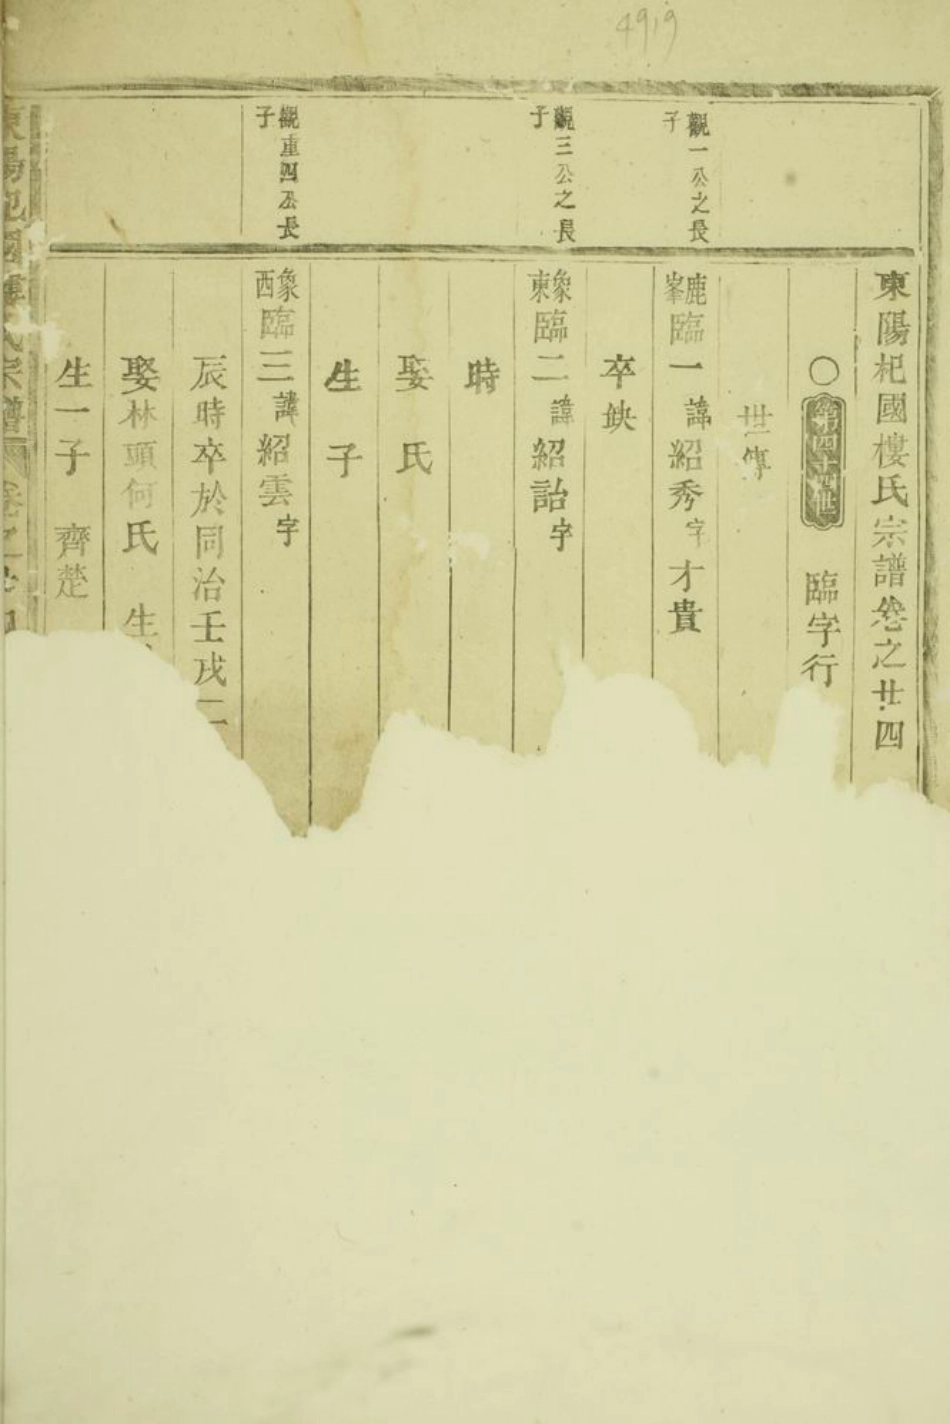 4919
東陽杞國樓氏宗譜卷之廿四
○第四十四世 臨字行
世傳
觀一公之長子
鹿峯臨一諱紹秀字才貴
卒缺
觀三公之長子
象東臨二諱紹詒字
時
娶 氏
生 子
觀重四公長子
象西臨三諱紹雲字
辰時卒於同治壬戌二
娶林頭何氏 生
生一子 齊楚
東陽杞國樓氏宗譜 卷之廿四